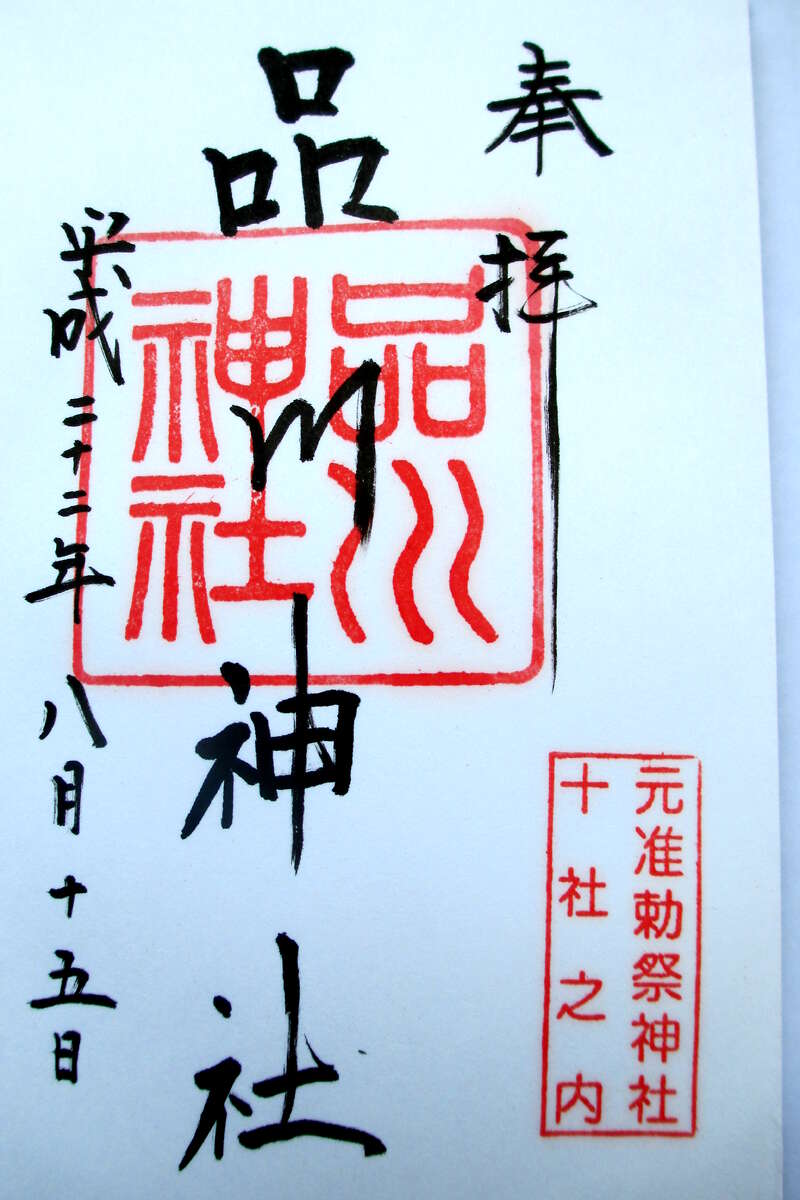 奉拝
品川神社
品川
神社
平成二十二年八月十五日
元准勅祭神社
十社之内